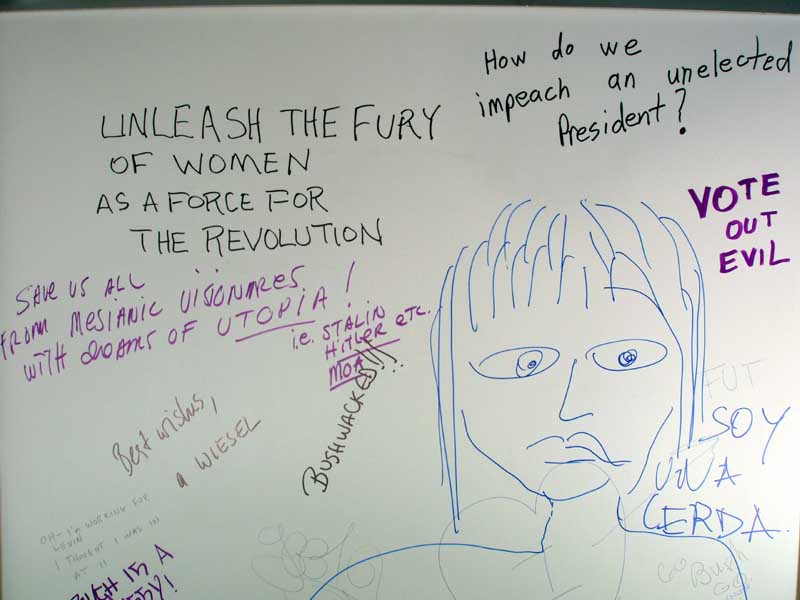 How do we
impeach an unelected
President?
UNLEASH THE FURY
OF WOMEN
AS A FORCE FOR
THE REVOLUTION
VOTE
OUT
EVIL
SAVE US ALL
FROM MESIANIC VISIONARES
WITH DREAMS OF UTOPIA!
i.e. STALIN
HITLER ETC.
MOA
BUSHWACKED!!!
Best wishes,
a WIESEL
FUT
SOY
UNA
CERDA.
OH - I'm WORKING FOR
I THOUGHT I WAS IN
AT 11
IS A
GO
Bush
GO